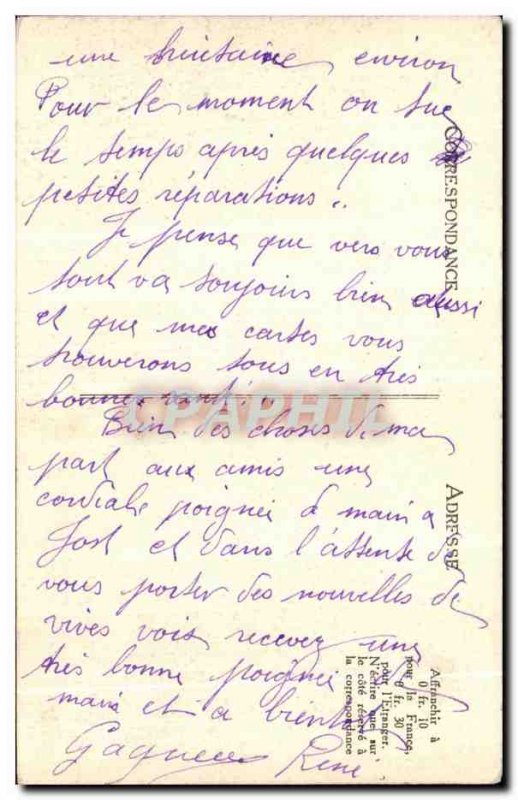 une huitaine environ
Pour le moment on tue
le temps après quelques
petites réparations ..
Je pense que vers vous
tout va toujours bien aussi
et que mes cartes vous
trouverons tous en très
bonne santé ..
Bien des choses de ma
part aux amis une
cordiale poignée de main a
Jost et dans l'attente de
vous porter des nouvelles de
vives voix recevez une
très bonne poignée de
main et a bientôt
René
CORRESPONDANCE
ADRESSE
Affranchir à
0 fr. 10
pour la France,
0 fr. 30
pour l'Étranger.
N'écrire que sur
le côté réservé à
la correspondance
CPAPHIL